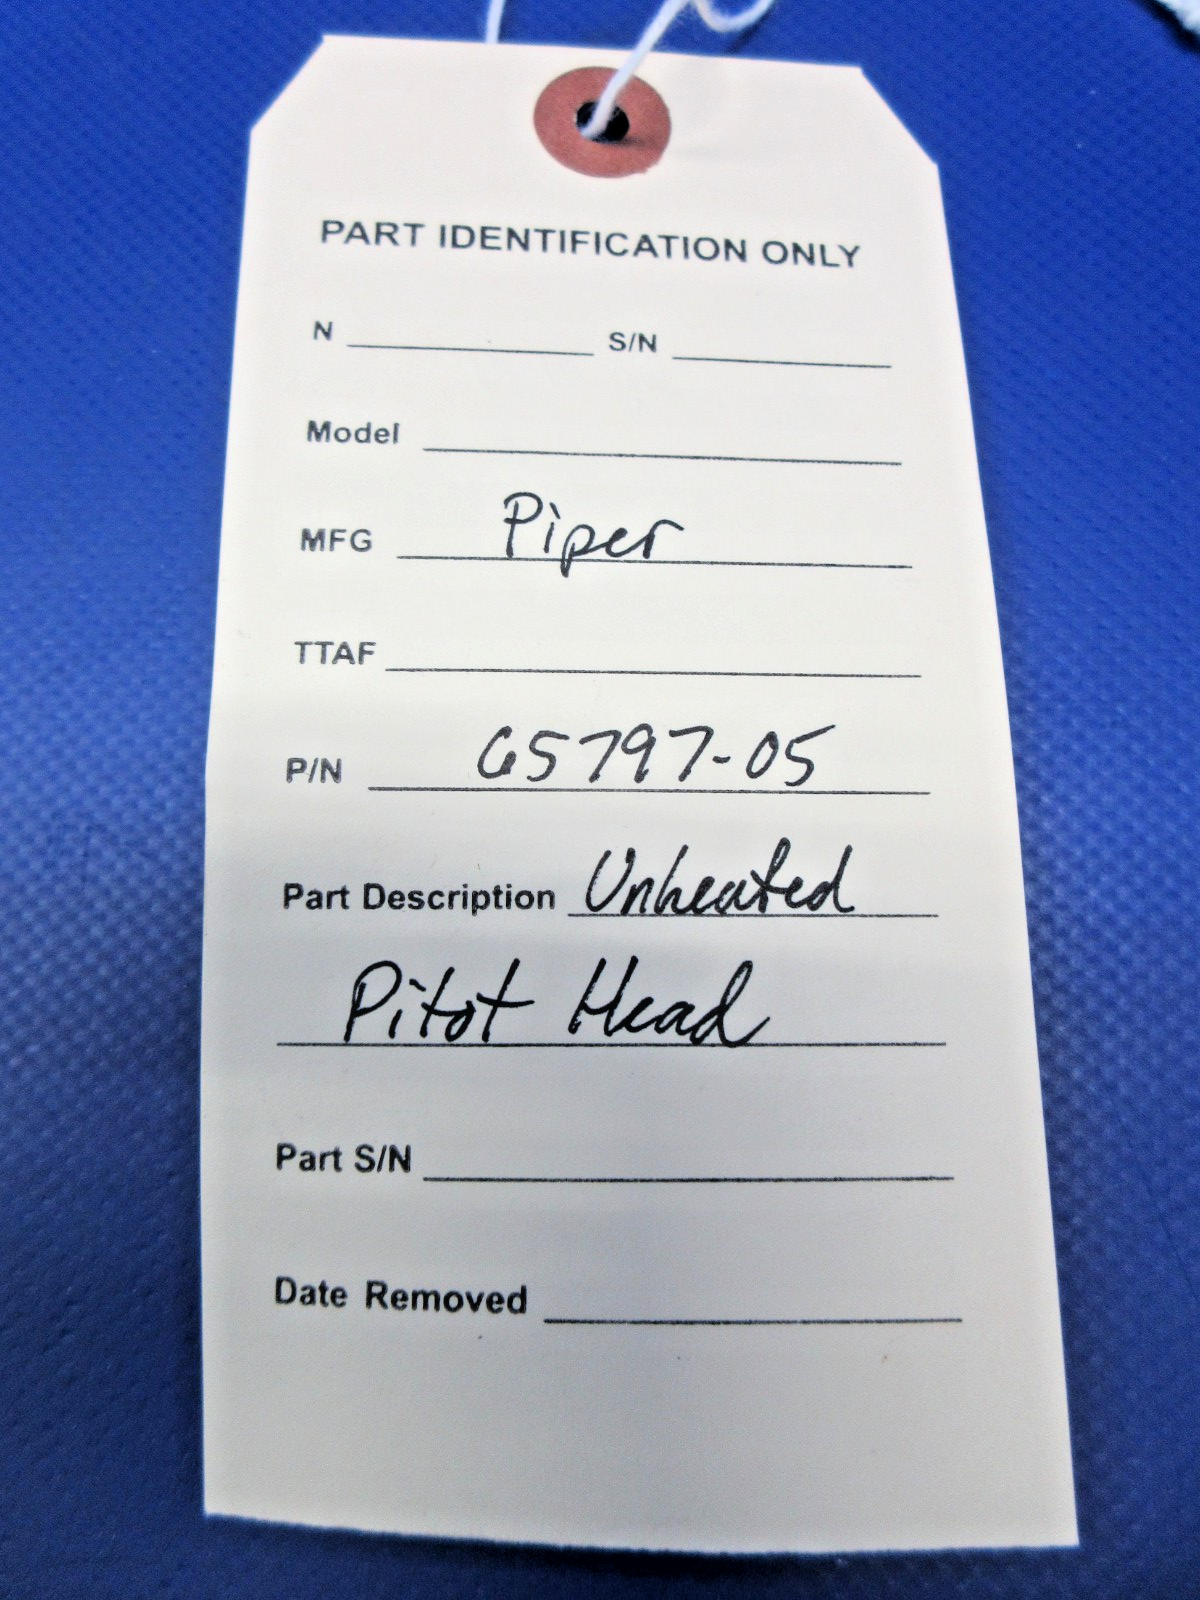 PART IDENTIFICATION ONLY
N S/N
Model
MFG Piper
TTAF
P/N 65797-05
Part Description Unheated
Pitot Head
Part S/N
Date Removed